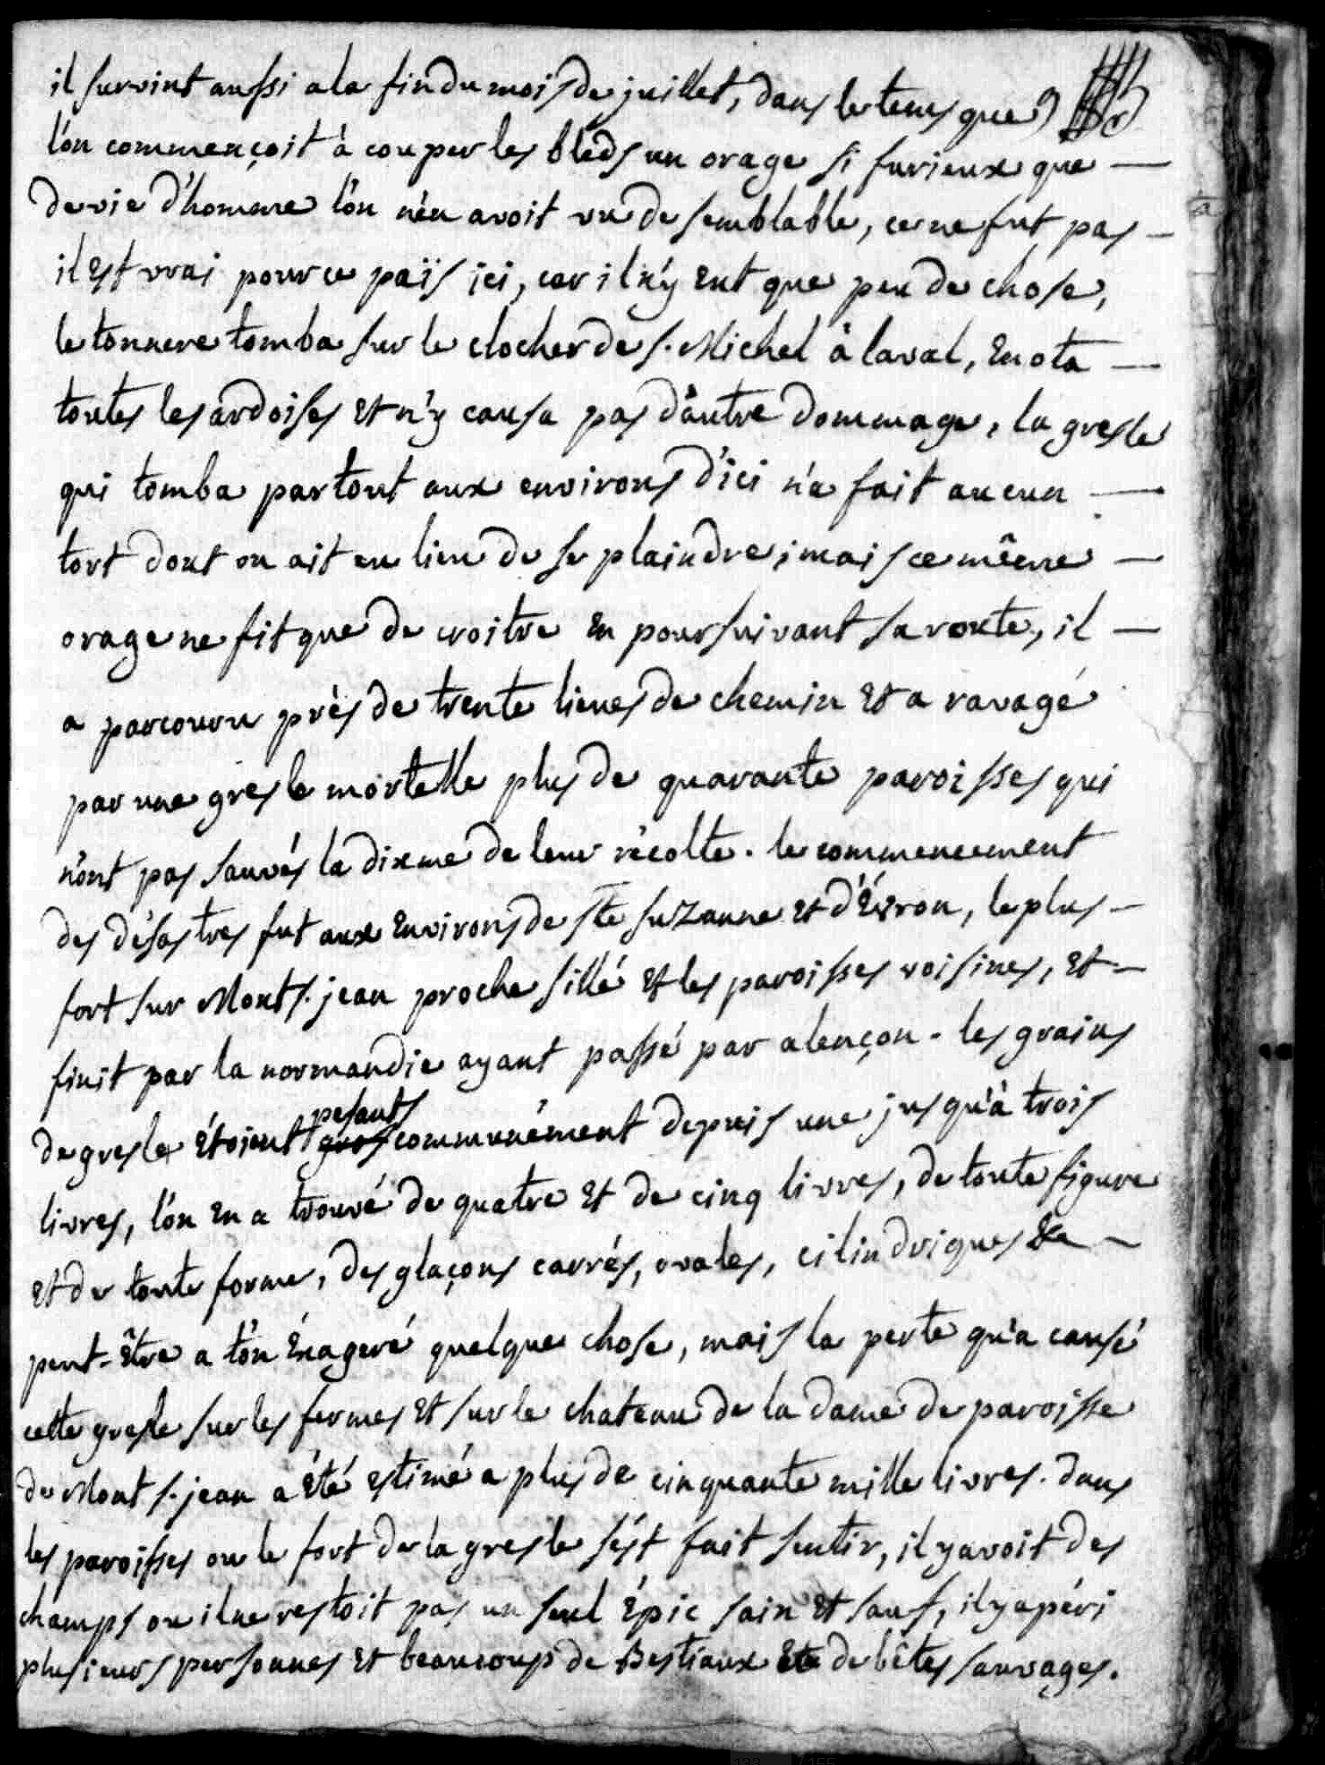 il survint aussi a la fin du mois de juillet, dans le tems que
l'on commençoit à couper les bleds un orage si furieux que —
de vie d'homme l'on n'en avoit vu de semblable, ce ne fut pas —
il est vrai pour ce païs ici, car il n'y eut que peu de chose,
le tonnere tomba sur le clocher de s. Michel à laval, en ota —
toutes les ardoises et n'y causa pas d'autre dommage, la gresle
qui tomba partout aux environs d'ici n'a fait aucun —
tort dont on ait eu lieu de se plaindre; mais ce même —
orage ne fit que de croitre en poursuivant sa route, il —
a parcouru près de trente lieues de chemin et a ravagé
par une gresle mortelle plus de quarante paroisses qui
n'ont pas sauvés la dixme de leur récolte. le commencement
des désastres fut aux environs de ste suzanne et d'Évron, le plus —
fort sur Mont s. jean proche sillé et les paroisses voisines, et —
finit par la normandie ayant passé par alençon. les grains
pesants
de gresle étoient gros communément depuis une jusqu'à trois
livres, l'on en a trouvé de quatre et de cinq livres, de toute figure
et de toute forme, des glaçons carrés, ovales, cilindriques &c —
peut-être a t'on éxageré quelque chose, mais la perte qu'a causé
cette gresle sur les fermes et sur le chateau de la dame de paroisse
de Mont s. jean a été estimé a plus de cinquante mille livres. dans
les paroisses ou le fort de la gresle s'est fait sentir, il y avoit des
champs ou il ne restoit pas un seul épic sain et sauf, il y a péri
plusieurs personnes et beaucoup de Bestiaux et de bêtes sauvages.